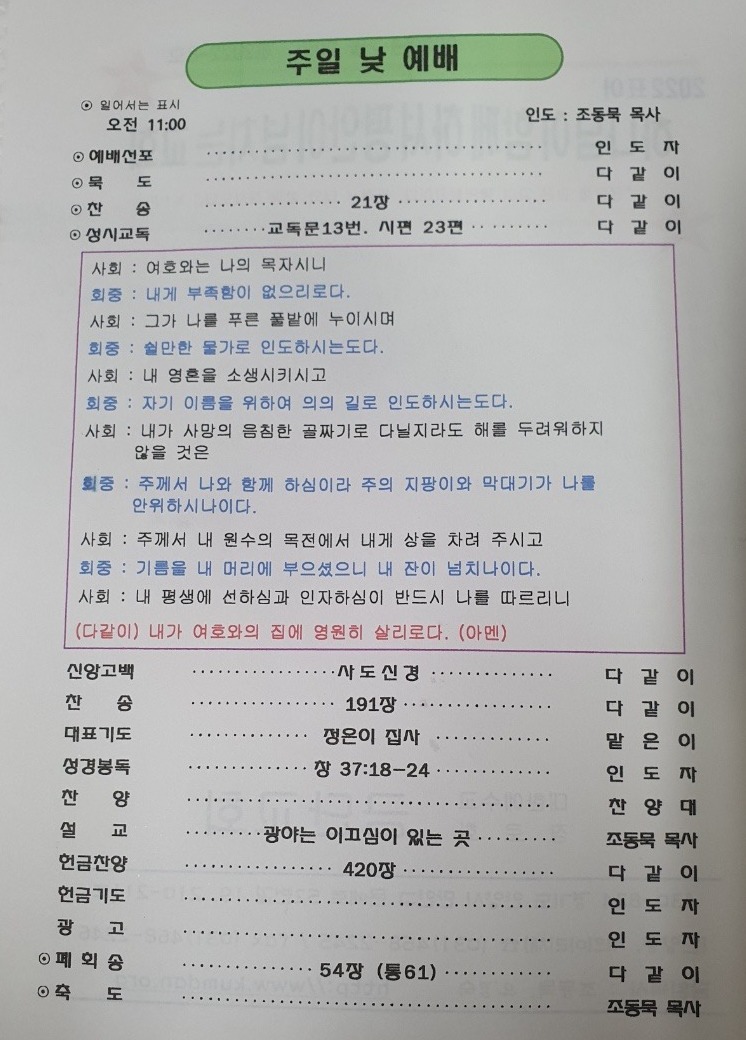 주일 낮 예배
⊙ 일어서는 표시
오전 11:00 인도 : 조동묵 목사
⊙ 예배선포 인 도 자
⊙ 묵 도 다 같 이
⊙ 찬 송 21장 다 같 이
⊙ 성시교독 교독문13번. 시편 23편 다 같 이
사회 : 여호와는 나의 목자시니
회중 : 내게 부족함이 없으리로다.
사회 : 그가 나를 푸른 풀밭에 누이시며
회중 : 쉴만한 물가로 인도하시는도다.
사회 : 내 영혼을 소생시키시고
회중 : 자기 이름을 위하여 의의 길로 인도하시는도다.
사회 : 내가 사망의 음침한 골짜기로 다닐지라도 해를 두려워하지
않을 것은
회중 : 주께서 나와 함께 하심이라 주의 지팡이와 막대기가 나를
안위하시나이다.
사회 : 주께서 내 원수의 목전에서 내게 상을 차려 주시고
회중 : 기름을 내 머리에 부으셨으니 내 잔이 넘치나이다.
사회 : 내 평생에 선하심과 인자하심이 반드시 나를 따르리니
(다같이) 내가 여호와의 집에 영원히 살리로다. (아멘)
신앙고백 사도신경 다 같 이
찬 송 191장 다 같 이
대표기도 정은이 집사 맡 은 이
성경봉독 창 37:18-24 인 도 자
찬 양 찬 양 대
설 교 광야는 이끄심이 있는 곳 조동묵 목사
헌금찬양 420장 다 같 이
헌금기도 인 도 자
광 고 인 도 자
⊙ 폐 회 송 54장 (통61) 다 같 이
⊙ 축 도 조동묵 목사